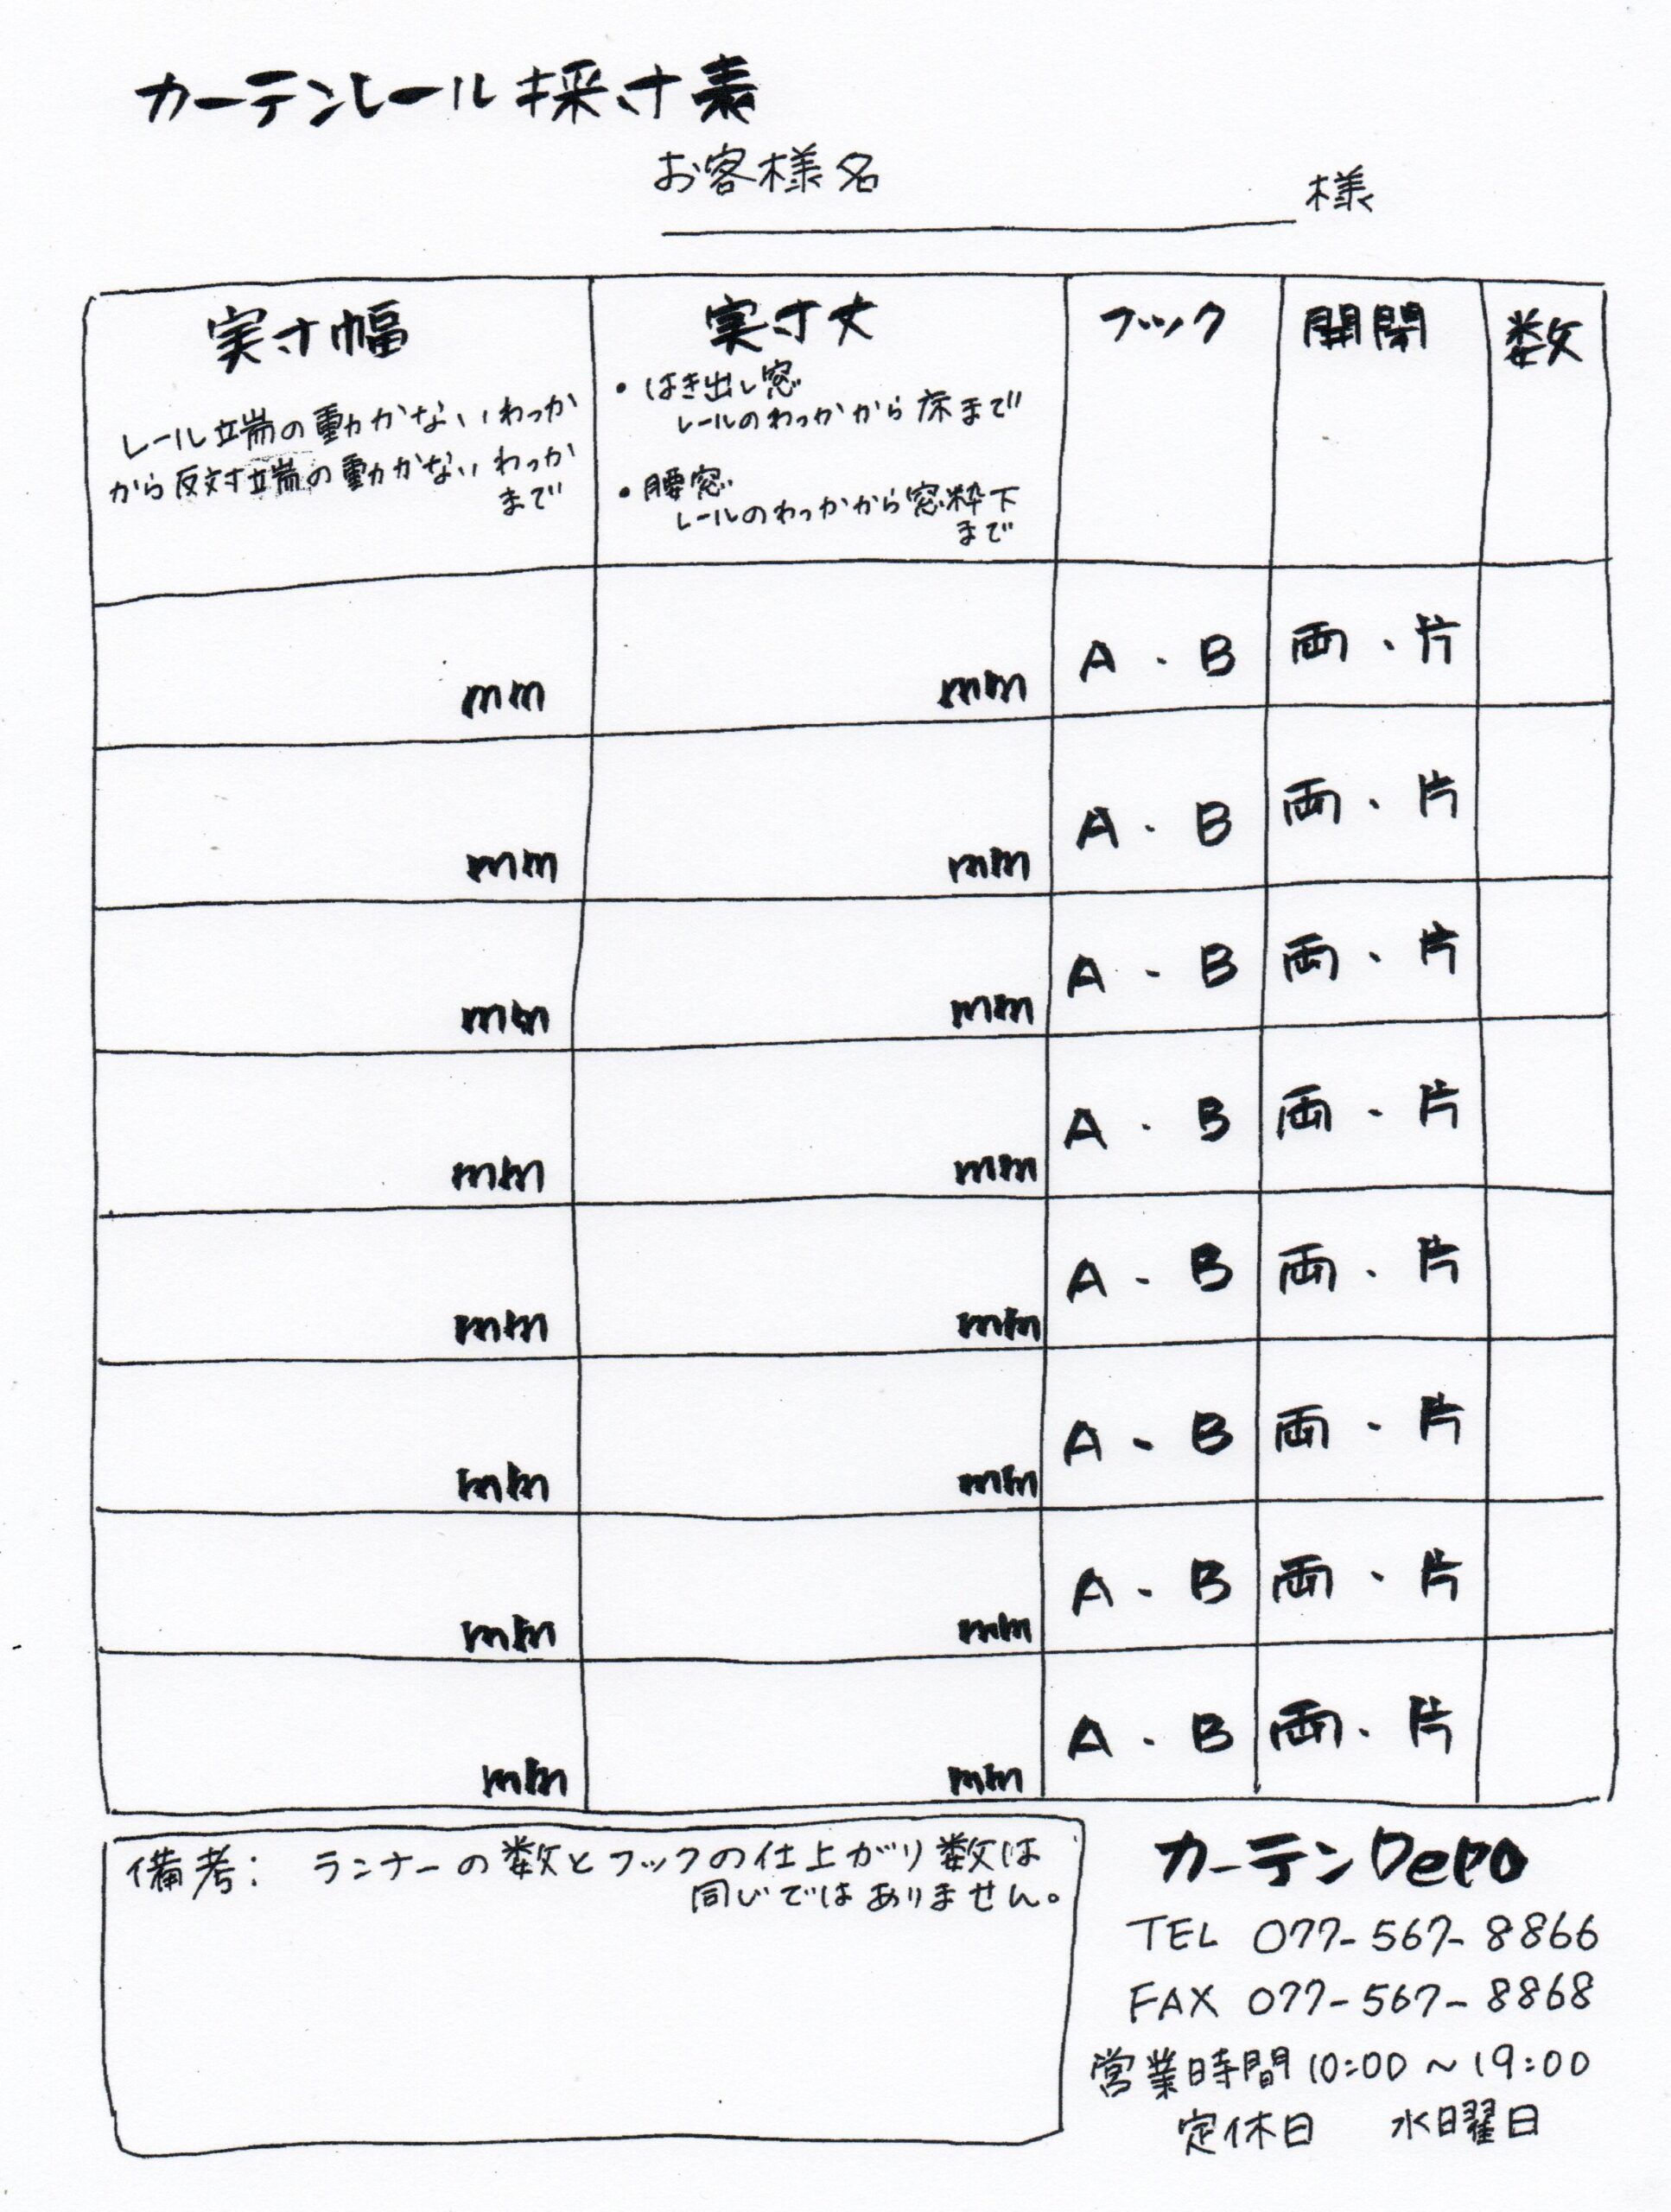 カーテンレール採寸表
お客様名 様
実寸幅 実寸丈 フック 開閉 数
レール端の動かないわっか
から反対端の動かないわっか
まで
・はき出し窓
レールのわっかから床まで
・腰窓
レールのわっかから窓枠下
まで
mm mm A・B 両・片
mm mm A・B 両・片
mm mm A・B 両・片
mm mm A・B 両・片
mm mm A・B 両・片
mm mm A・B 両・片
mm mm A・B 両・片
mm mm A・B 両・片
備考: ランナーの数とフックの仕上がり数は
同じではありません。
カーテンDepo
TEL 077-567-8866
FAX 077-567-8868
営業時間 10:00～19:00
定休日 水曜日